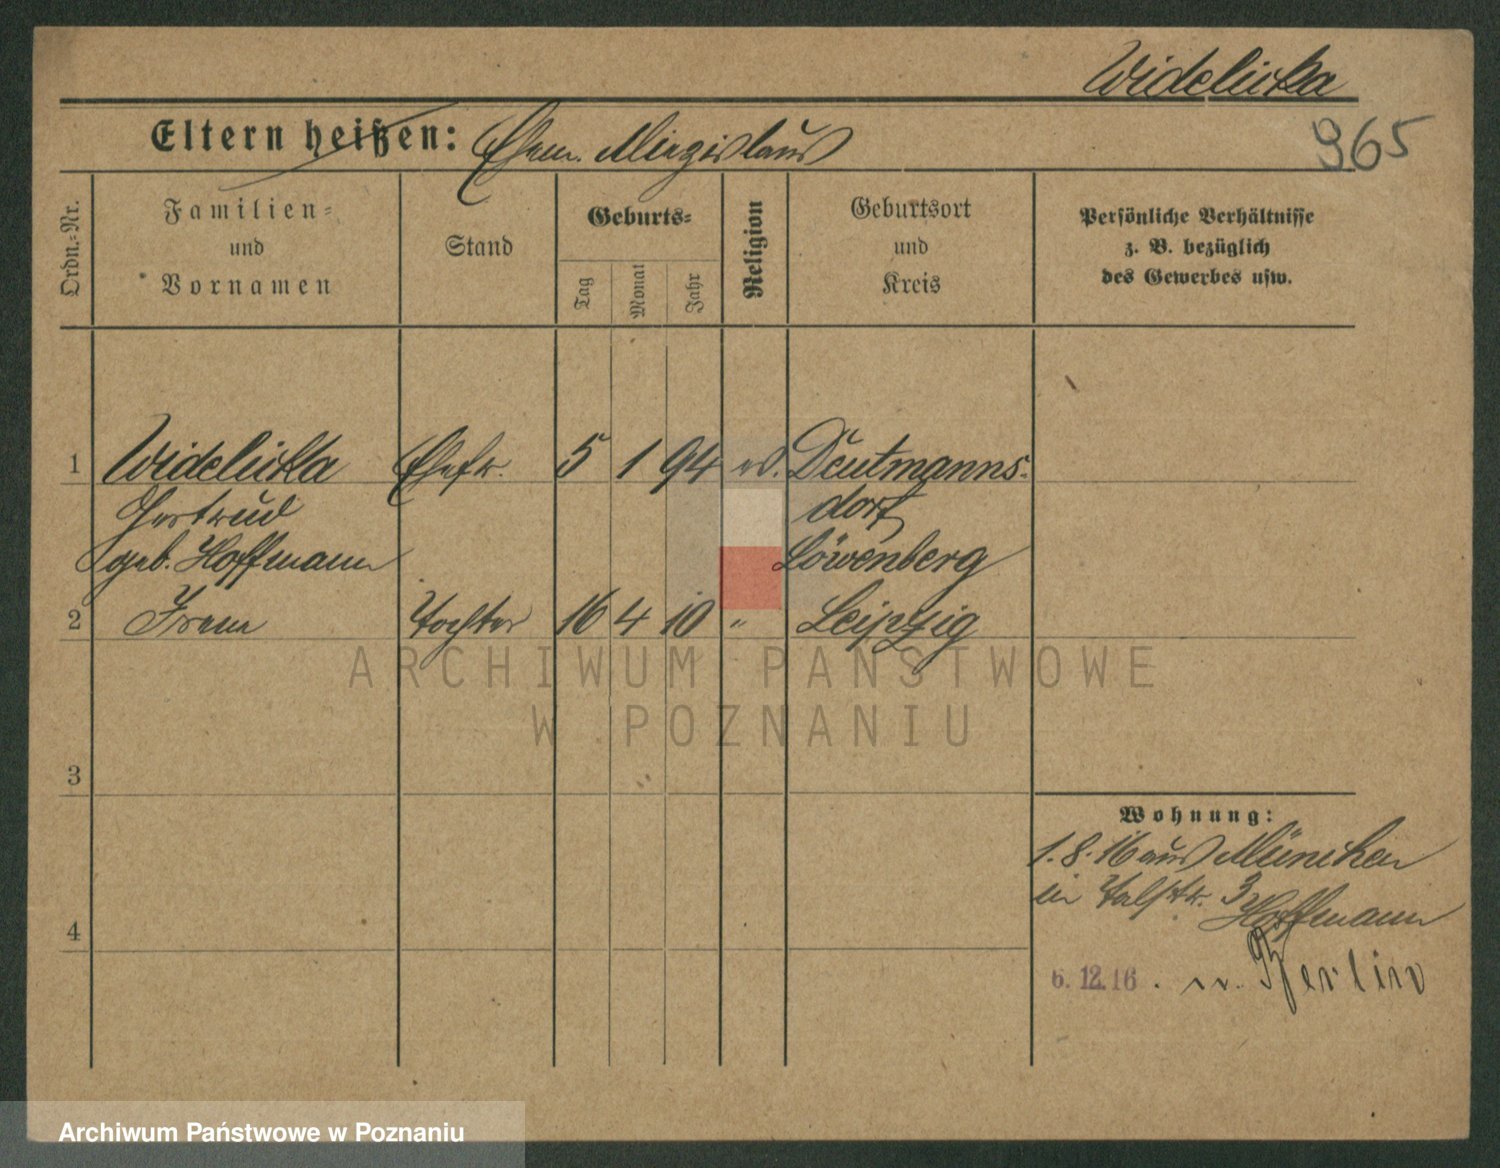 Widelicka
Eltern heißen: Ehem. Miezislaus
965
Ordn.-Nr.
Familien-
und
Vornamen
Stand
Geburts-
Tag
Monat
Jahr
Religion
Geburtsort
und
Kreis
Persönliche Verhältnisse
z. B. bezüglich
des Gewerbes usw.
1 Widelicka Ehefr. 5 1 94 Deutmanns-
Gertrud dorf
geb. Hoffmann Löwenberg
2 Irene Tochter 16 4 10 " Leipzig
ARCHIWUM PAŃSTWOWE
W POZNANIU
3
Wohnung:
1.8.16 aus München
in Talstr. 3
Hoffmann
4
6.12.16. n. Berlin
Archiwum Państwowe w Poznaniu